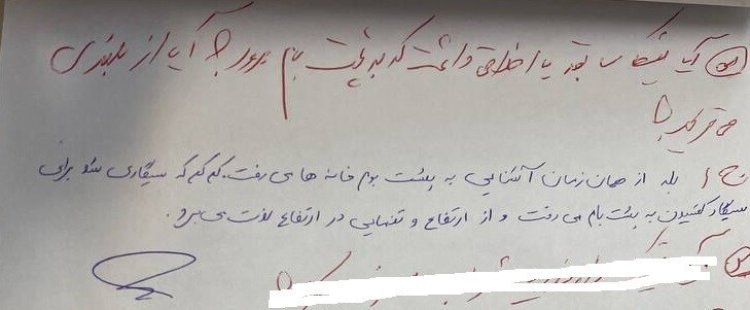 س) آیا نیکا سابقه یا اخلاقی داشت که به پشت بام برود؟ آیا از بلندی
می‌ترسید؟
ج) بله از همان زمان آشنایی به پشت بوم خانه های رفت. کم کم که سیگاری شد برای
سیگار کشیدن به پشت بام می رفت و از ارتفاع و تنهایی در ارتفاع لذت می برد.
س)